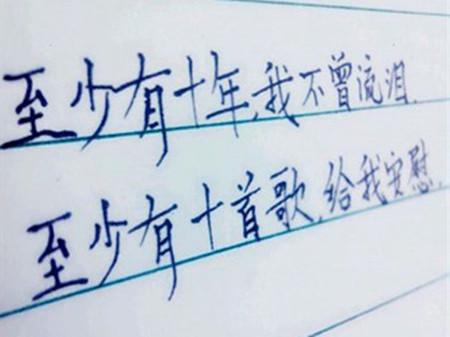 至少有十年,我不曾流泪.
至少有十首歌,给我安慰.